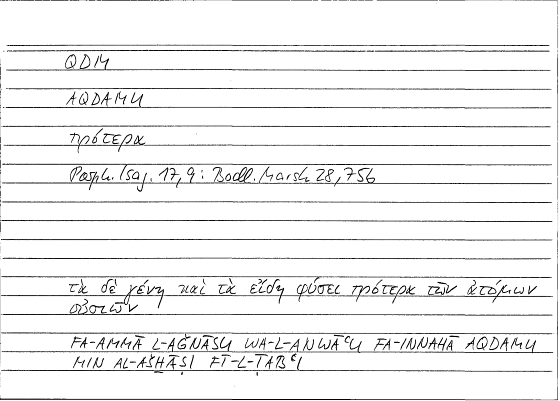 QDM
AQDAMU
πρότερα
Porph. Isag. 17,9: Bodl. Marsh 28,756
τὰ δὲ γένη καὶ τὰ εἴδη φύσει πρότερα τῶν ἀτόμων
οὐσιῶν
FA-AMMĀ L-AǦNĀSU WA-L-ANWĀᶜU FA-INNAHĀ AQDAMU
MIN AL-AŠḪĀṢI FĪ-L-ṬABᶜI